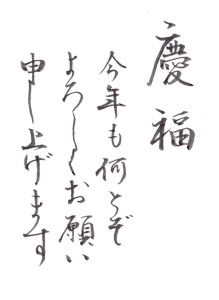 慶福
今年も何とぞ
よろしくお願い
申し上げます